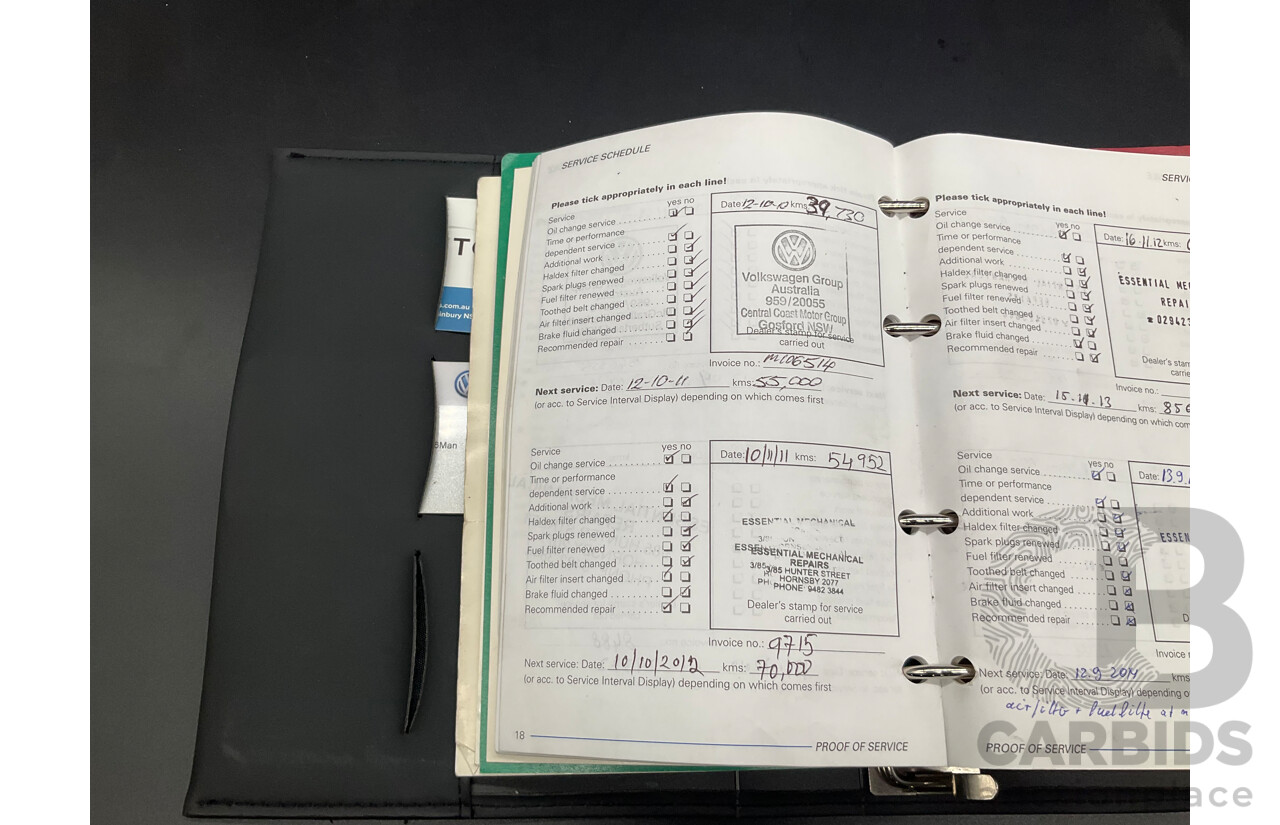 SERVICE SCHEDULE
Please tick appropriately in each line!
yes no
Service
Oil change service
Time or performance
dependent service
Additional work
Haldex filter changed
Spark plugs renewed
Fuel filter renewed
Toothed belt changed
Air filter insert changed
Brake fluid changed
Recommended repair
Date: 12-10-10 kms: 39,730
Volkswagen Group
Australia
959/20055
Central Coast Motor Group
Gosford NSW
Dealer's stamp for service
carried out
Invoice no.: M106514
Next service: Date: 12-10-11 kms: 55,000
(or acc. to Service Interval Display) depending on which comes first
yes no
Service
Oil change service
Time or performance
dependent service
Additional work
Haldex filter changed
Spark plugs renewed
Fuel filter renewed
Toothed belt changed
Air filter insert changed
Brake fluid changed
Recommended repair
Date: 10/11/11 kms: 54952
ESSENTIAL MECHANICAL
REPAIRS
3/85 HUNTER STREET
HORNSBY 2077
PHONE: 9482 3844
Dealer's stamp for service
carried out
Invoice no.: 9715
Next service: Date: 10/10/2012 kms: 70,000
(or acc. to Service Interval Display) depending on which comes first
18
PROOF OF SERVICE
SERVI
Please tick appropriately in each line!
yes no
Service
Oil change service
Time or performance
dependent service
Additional work
Haldex filter changed
Spark plugs renewed
Fuel filter renewed
Toothed belt changed
Air filter insert changed
Brake fluid changed
Recommended repair
Date: 16.11.12 kms:
ESSENTIAL ME
REPAI
Dealer's stam
carrie
Invoice no.:
Next service: Date: kms: 856
(or acc. to Service Interval Display) depending on which com
yes no
Service
Oil change service
Time or performance
dependent service
Additional work
Haldex filter changed
Spark plugs renewed
Fuel filter renewed
Toothed belt changed
Air filter insert changed
Brake fluid changed
Recommended repair
Date: 13.9.
ESSEN
D
Invoice
Next service: Date: 12.9 2014 kms
(or acc. to Service Interval Display) depending o
PROOF OF SERVICE
s.com.au
inbury NS
Man
CARBIDS